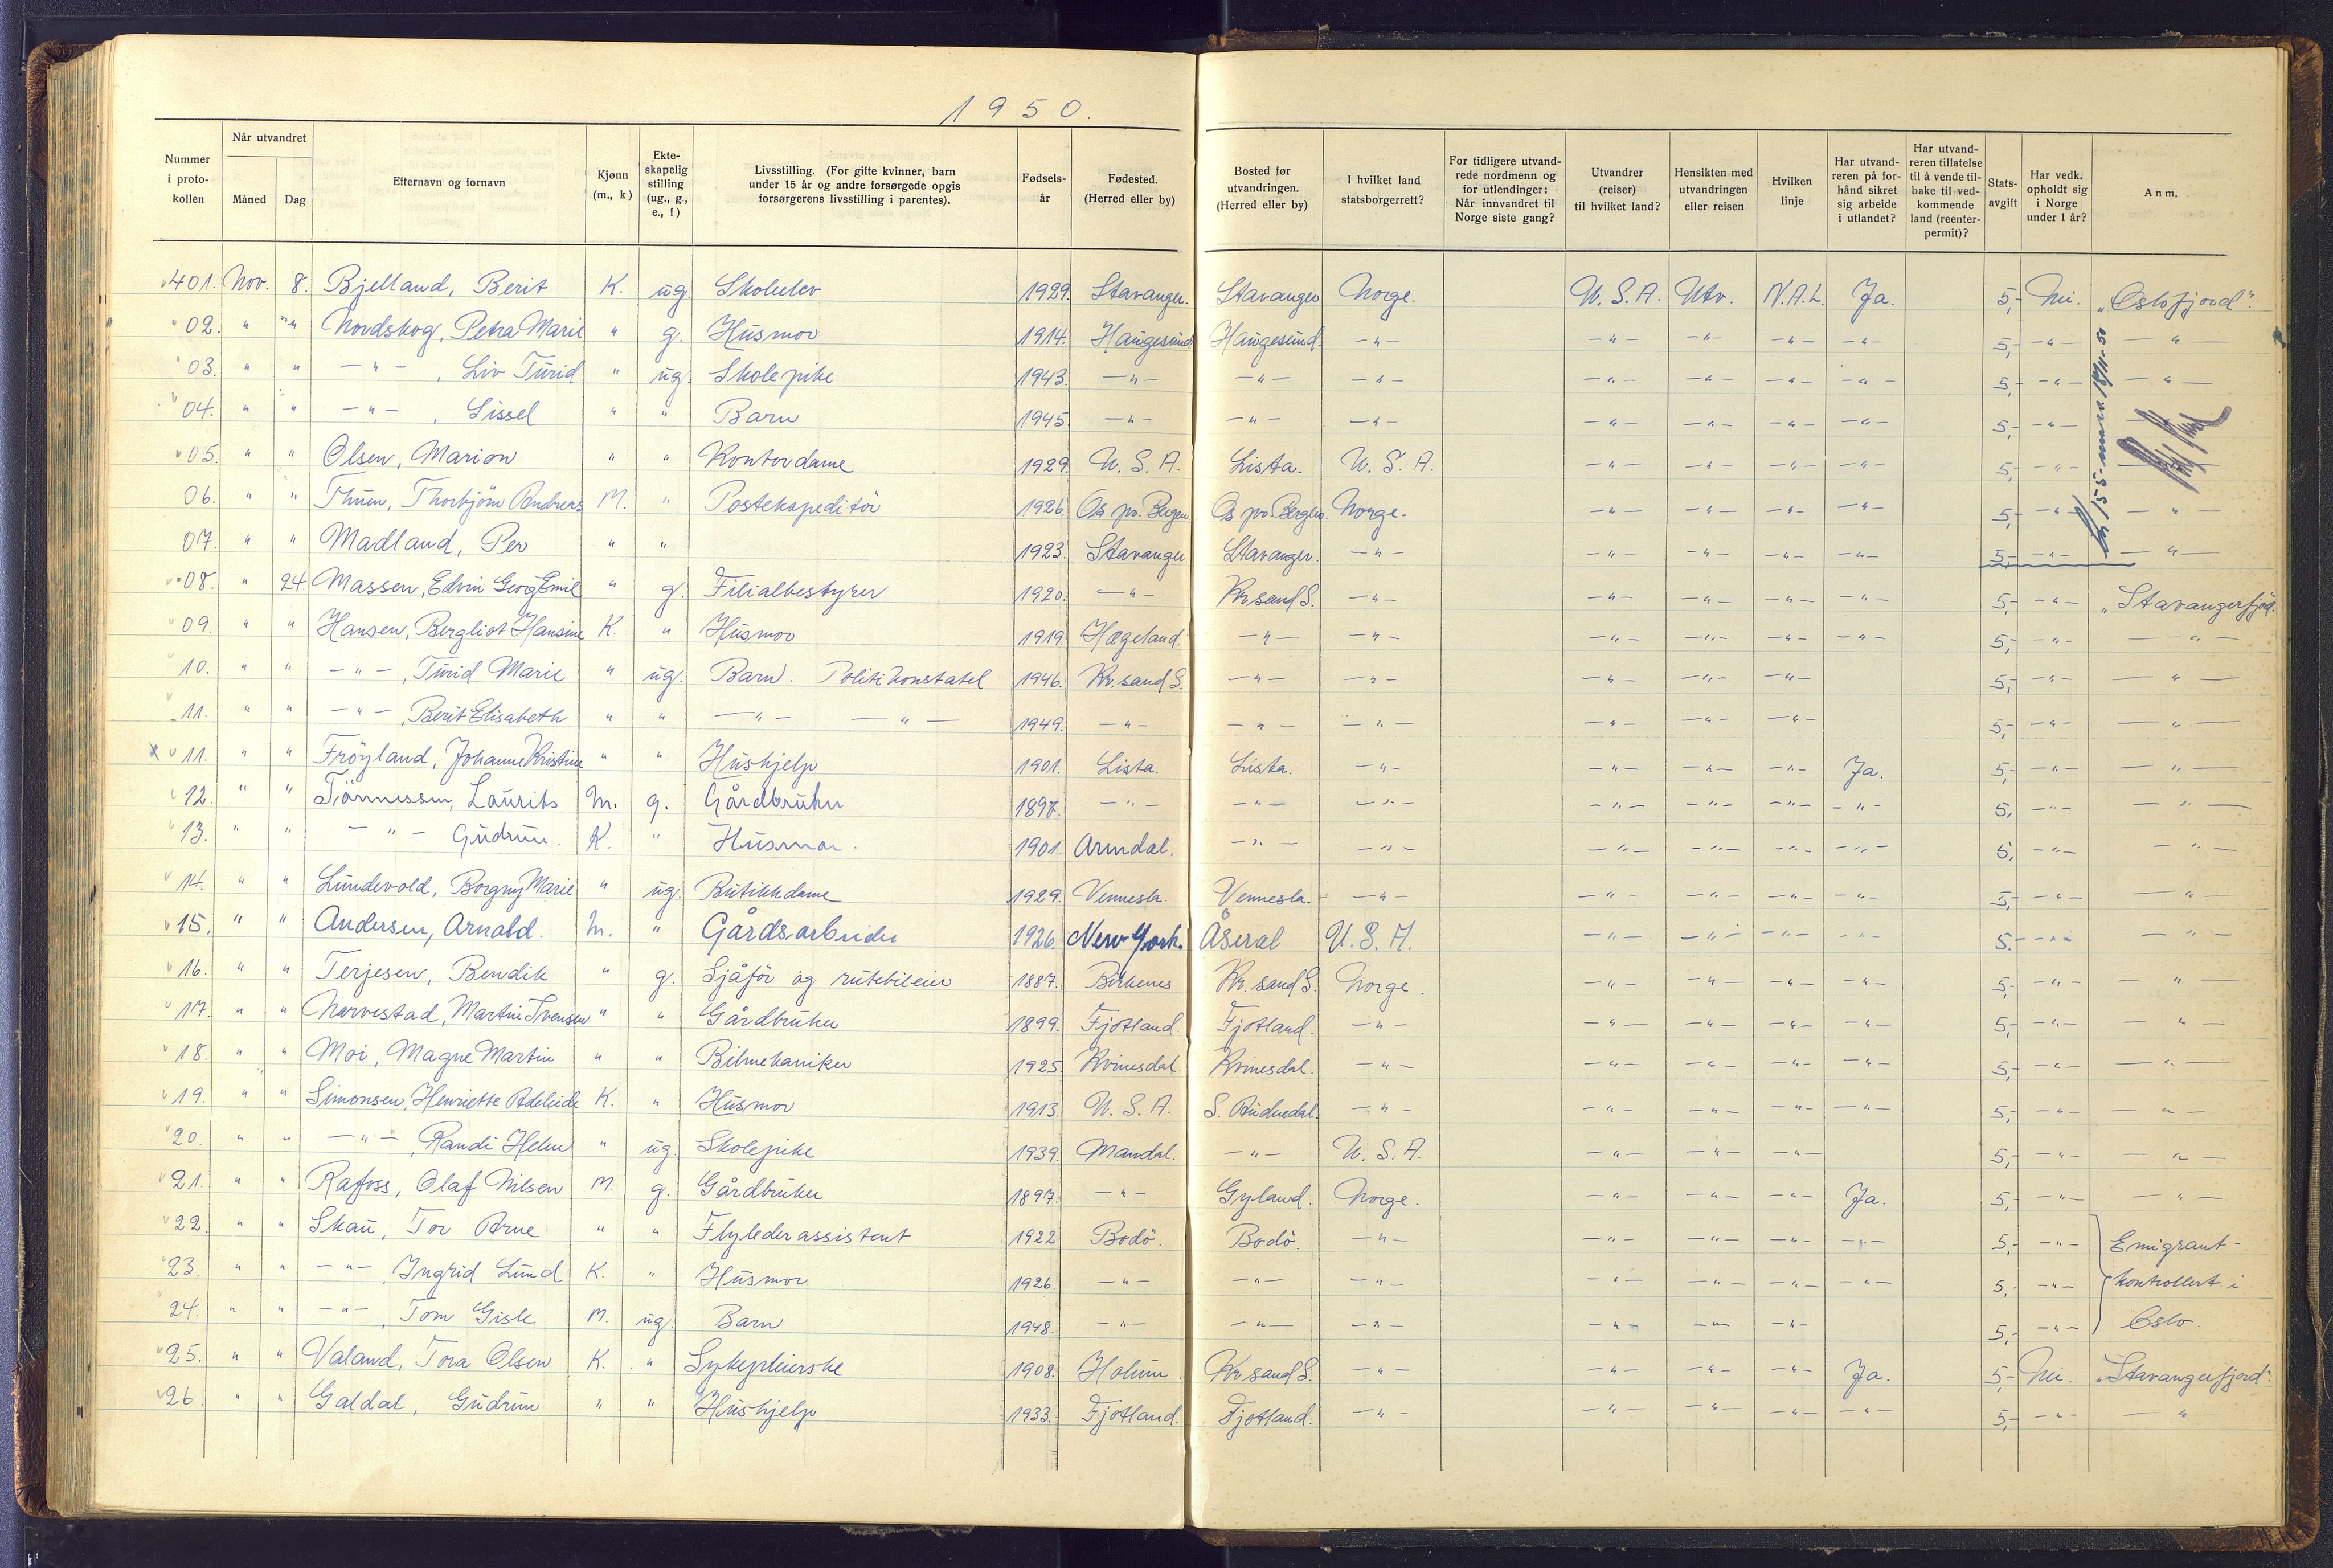 1950.
Nummer i protokollen | Når utvandret Måned | Dag | Efternavn og fornavn | Kjønn (m., k) | Ekteskapelig stilling (ug., g., e., f) | Livsstilling. (For gifte kvinner, barn under 15 år og andre forsørgede opgis forsørgerens livsstilling i parentes). | Fødselsår | Fødested. (Herred eller by) | Bosted før utvandringen. (Herred eller by) | I hvilket land statsborgerrett? | For tidligere utvandrede nordmenn og for utlendinger: Når innvandret til Norge siste gang? | Utvandrer (reiser) til hvilket land? | Hensikten med utvandringen eller reisen | Hvilken linje | Har utvandreren på forhånd sikret sig arbeide i utlandet? | Har utvandreren tillatelse til å vende tilbake til vedkommende land (reenterpermit)? | Statsavgift | Har vedk. opholdt sig i Norge under 1 år? | Anm.
401. Nov. 8. Bjelland, Berit K. ug. Skoleelev 1929. Stavanger. Stavanger Norge. U.S.A. Utv. N.A.L. Ja. 5,- Nei. "Oslofjord".
02. " " Nordskog, Petra Marie " g. Husmor 1914. Haugesund Haugesund. -"- -"- -"- -"- -"- 5,- -"- -"-
03. " " -"-, Liv Turid " ug. Skolepike 1943. -"- -"- -"- -"- -"- -"- -"- 5,- -"- -"-
04. " " -"-, Sissel " " Barn 1945. -"- -"- -"- -"- -"- -"- -"- 5,- -"-
05. " " Olsen, Marion " " Kontordame 1929. U.S.A. Lista. U.S.A. -"- -"- -"- -"- 5,- -"-
06. " " Thuen, Thorbjörn Andreas M. " Postekspeditör 1926. Os pr. Bergen Os pr. Bergen. Norge. -"- -"- -"- -"- 5,- -"- -"-
07. " " Madland, Per " " 1923. Stavanger. Stavanger. -"- -"- -"- -"- -"- 5,- -"- -"-
08. " 24. Massen, Edvin Georg Emil " g. Filialbestyrer 1920. -"- Kr.sand S. -"- -"- -"- -"- -"- 5,- -"- "Stavangerfjord.
09. " " Hansen, Bergliot Hansine K. " Husmor 1919. Hægeland. -"- -"- -"- -"- -"- -"- 5,- -"- -"-
10. " " -"-, Turid Marie " ug. Barn. Politikonstabel 1946. Kr.sand S. -"- -"- -"- -"- -"- 5,- -"- -"-
11. " " -"-, Berit Elisabeth " " -"- -"- 1949. -"- -"- -"- -"- -"- -"- 5,- -"- -"-
x 11. " " Fröyland, Johanne Kristine " " Hushjelp 1901. Lista. Lista. -"- -"- -"- -"- Ja. 5,- -"- -"-
12. " " Tönnessen, Laurits M. g. Gårdbruker 1897. -"- -"- -"- -"- -"- -"- -"- 5, -"- -"-
13. " " -"- Gudrun. K. " Husmor. 1901. Arendal. -"- -"- -"- -"- -"- -"- 5, -"- -"-
14. " " Lundevold, Borgny Marie " ug. Butikkdame 1929. Vennesla. Vennesla. -"- -"- -"- -"- -"- 5,- -"- -"-
15. " " Andersen, Arnold. M. " Gårdsarbeider 1926. New York. Åseral U.S.A. -"- -"- -"- -"- 5. -"- -"-
16. " " Terjesen, Bendik " g. Sjåför og rutebileier 1887. Birkenes Kr.sand S. Norge. -"- -"- -"- -"- 5,- -"- -"-
17. " " Narvestad, Martin Svensen " " Gårdbruker 1899. Fjotland. Fjotland. -"- -"- -"- -"- -"- 5,- -"- -"-
18. " " Moi, Magne Martin " " Bilmekaniker 1925. Kvinesdal. Kvinesdal. -"- -"- -"- -"- -"- 5,- -"- -"-
19. " " Simonsen, Henriette Adeleide K. " Husmor 1913. U.S.A. S. Audnedal. -"- -"- -"- -"- -"- 5,- -"- -"-
20. " " -"-, Randi Helen " ug. Skolepike 1939. Mandal. -"- U.S.A. -"- -"- -"- 5,- -"- -"-
21. " " Rafoss, Olaf Nilsen M. g. Gårdbruker 1897. -"- Gyland. Norge. -"- -"- -"- Ja. 5,- -"- -"-
22. " " Skau, Tor Arne " " Flylederassistent 1922 Bodö. Bodö. -"- -"- -"- -"- -"- 5,- -"- Emigrant-
23. " " -"-, Ingrid Lund K. " Husmor 1926. -"- -"- -"- -"- -"- -"- -"- 5,- -"- kontrollert i
24. " " -"-, Tom Gisle M. ug. Barn 1948. -"- -"- -"- -"- -"- -"- 5,- -"- Oslo.
25. " " Valand, Tora Olsen K. " Sykepleierske 1908. Holum. Kr.sand S. -"- -"- -"- -"- Ja. 5,- Nei. "Stavangerfjord".
26. " " Galdal, Gudrun " " Hushjelp 1933. Fjotland. Fjotland. -"- -"- -"- -"- -"- 5,- -"- -"-